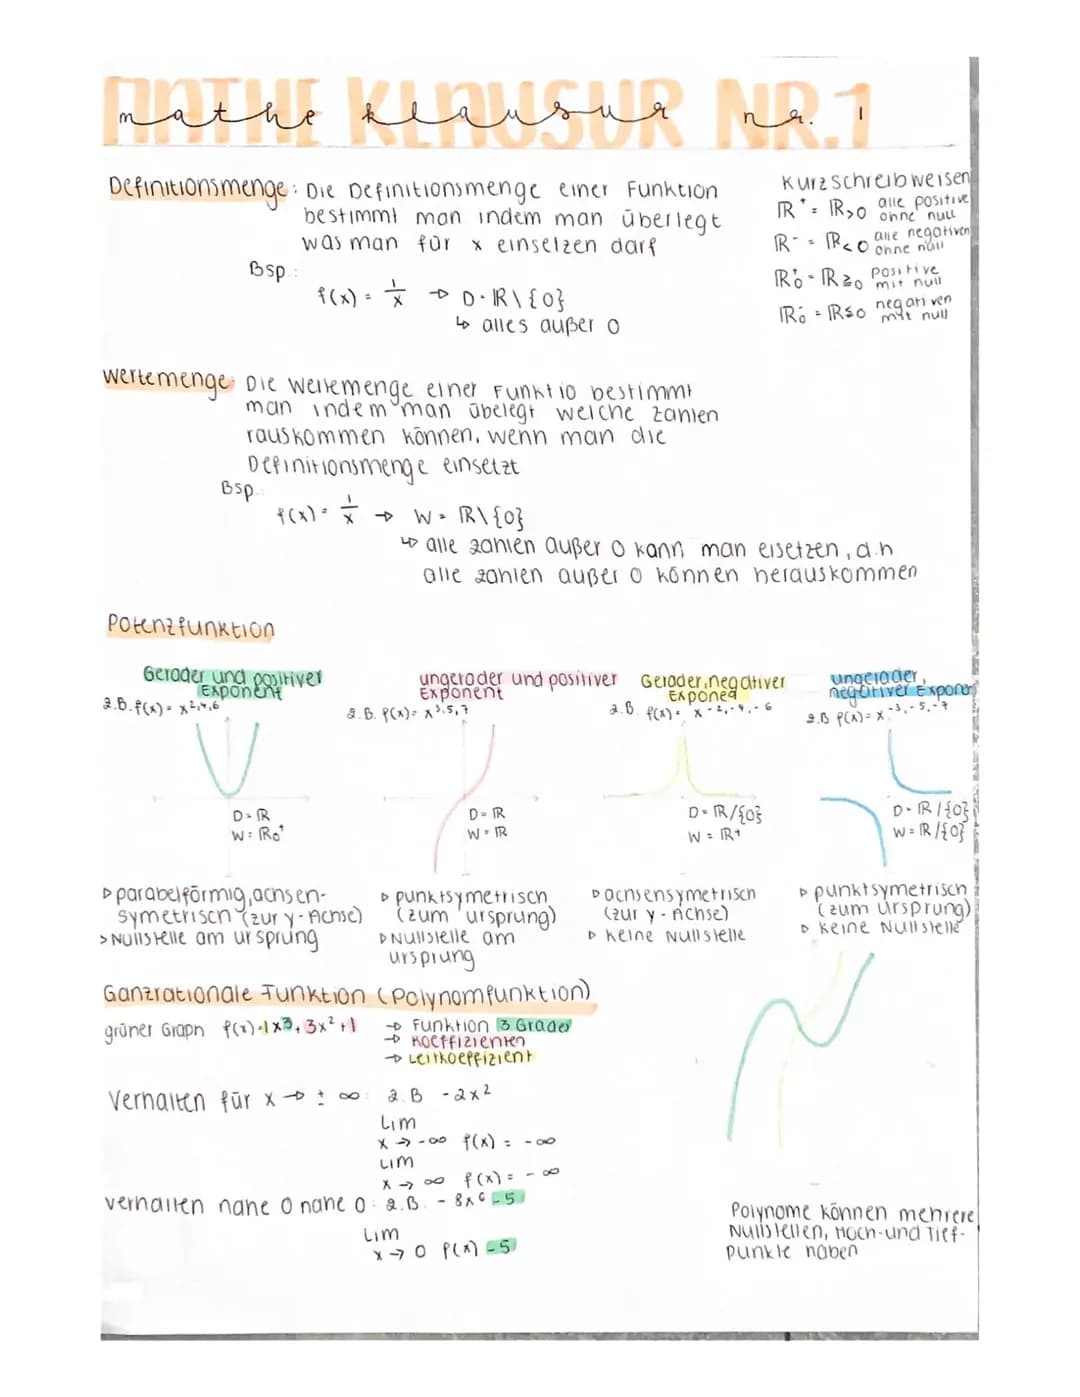 MATHE KLAUSUR NR.1
mathe klausur nr. 1
Definitionsmenge: Die Definitionsmenge einer Funktion
bestimmt man indem man überlegt
was man für x einsetzen darf
Bsp.:
f(x) = 1/x → D = ℝ\{0}
↳ alles außer 0
Kurzschreibweisen
ℝ⁺ = ℝ>0 alle positive ohne null
ℝ⁻ = ℝ<0 alle negativen ohne null
ℝ₀⁺ = ℝ≥0 positive mit null
ℝ₀⁻ = ℝ≤0 negativen mit null
Wertemenge: Die Wertemenge einer Funktio bestimmt
man indem man übelegt welche zahlen
rauskommen können, wenn man die
Definitionsmenge einsetzt
Bsp.:
f(x) = 1/x → W = ℝ\{0}
↳ alle zahlen außer 0 kann man eisetzen, d.h
alle zahlen außer 0 können herauskommen
Potenzfunktion
Gerader und positiver
Exponent
z.B. f(x) = x²,⁴,⁶
D = ℝ
W = ℝ₀⁺
▹ parabelförmig, achsen-
symetrisch (zur y-Achse)
> Nullstelle am ursprung
ungerader und positiver
Exponent
z.B. f(x) = x³,⁵,⁷
D = ℝ
W = ℝ
▹ punktsymetrisch
(zum ursprung)
▹ Nullstelle am
ursprung
Gerader, negativer
Exponent
z.B. f(x) = x⁻²,⁻⁴,⁻⁶
D = ℝ/{0}
W = ℝ⁺
▹ achsensymetrisch
(zur y-Achse)
▹ keine Nullstelle
ungerader,
negativer Exponen
z.B f(x) = x⁻³,⁻⁵,⁻⁷
D = ℝ/{0}
W = ℝ/{0}
▹ punktsymetrisch
(zum ursprung)
▹ keine Nullstelle
Ganzrationale Funktion (Polynomfunktion)
grüner Graph f(x) = 1x³ + 3x² + 1 → Funktion 3 Grades
→ Koeffizienten
→ Leitkoeffizient
Verhalten für x → ± ∞: z.B -2x²
Lim
x → -∞ f(x) = -∞
Lim
x → ∞ f(x) = -∞
verhalten nahe 0 nahe 0: z.B. - 8x⁶ -5
Lim
x → 0 f(x) = 5
Polynome können mehrere
Nullstellen, Hoch- und Tief-
punkte haben